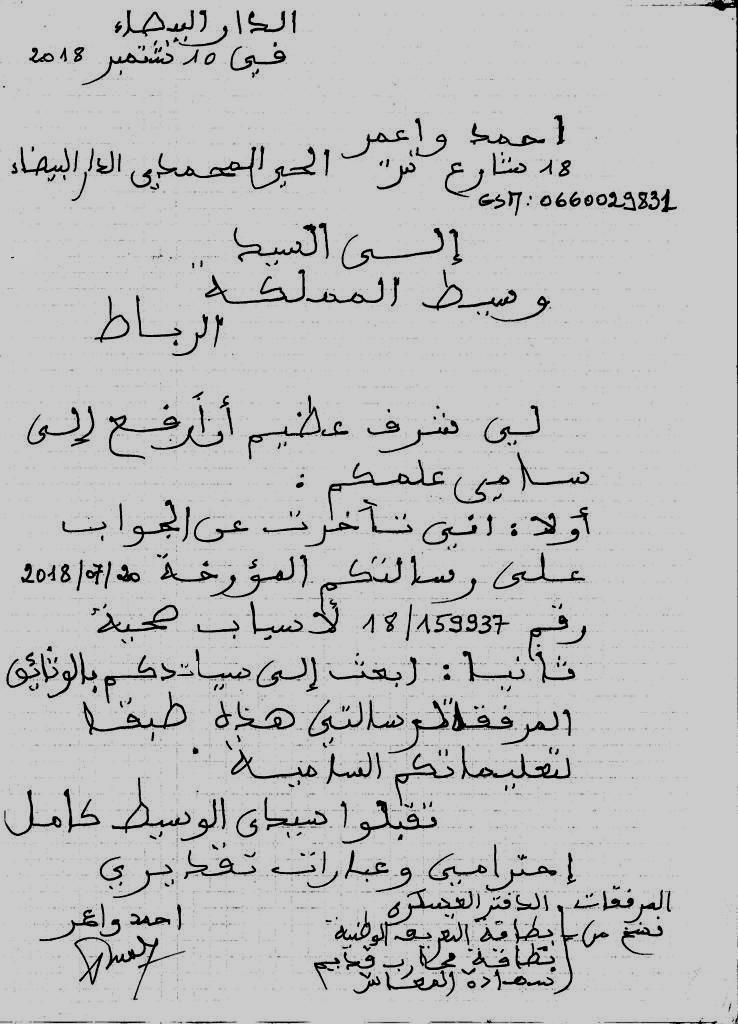 الدار البيضاء
في 10 شتنبر 2018
احمد واعمر
18 شارع "ش" الحي المحمدي الدار البيضاء
GSM: 0660029831
إلى السيد
وسيط المملكة
الرباط
لي شرف عظيم أن أرفع إلى
سامي علمكم :
أولا : انني تأخرت عن الجواب
على رسالتكم المؤرخة 2018/07/20
رقم 18/159937 لأسباب صحية
ثانيا : ابعث إلى سيادتكم بالوثائق
المرفقة لرسالتي هذه طبقا
لتعليماتكم السامية .
تقبلوا سيدي الوسيط كامل
إحترامي وعبارات تقديري
احمد واعمر
المرفقات الدفتر العسكري
نسخ من بطاقة التعريف الوطنية
بطاقة محارب قديم
شهادة المعاش